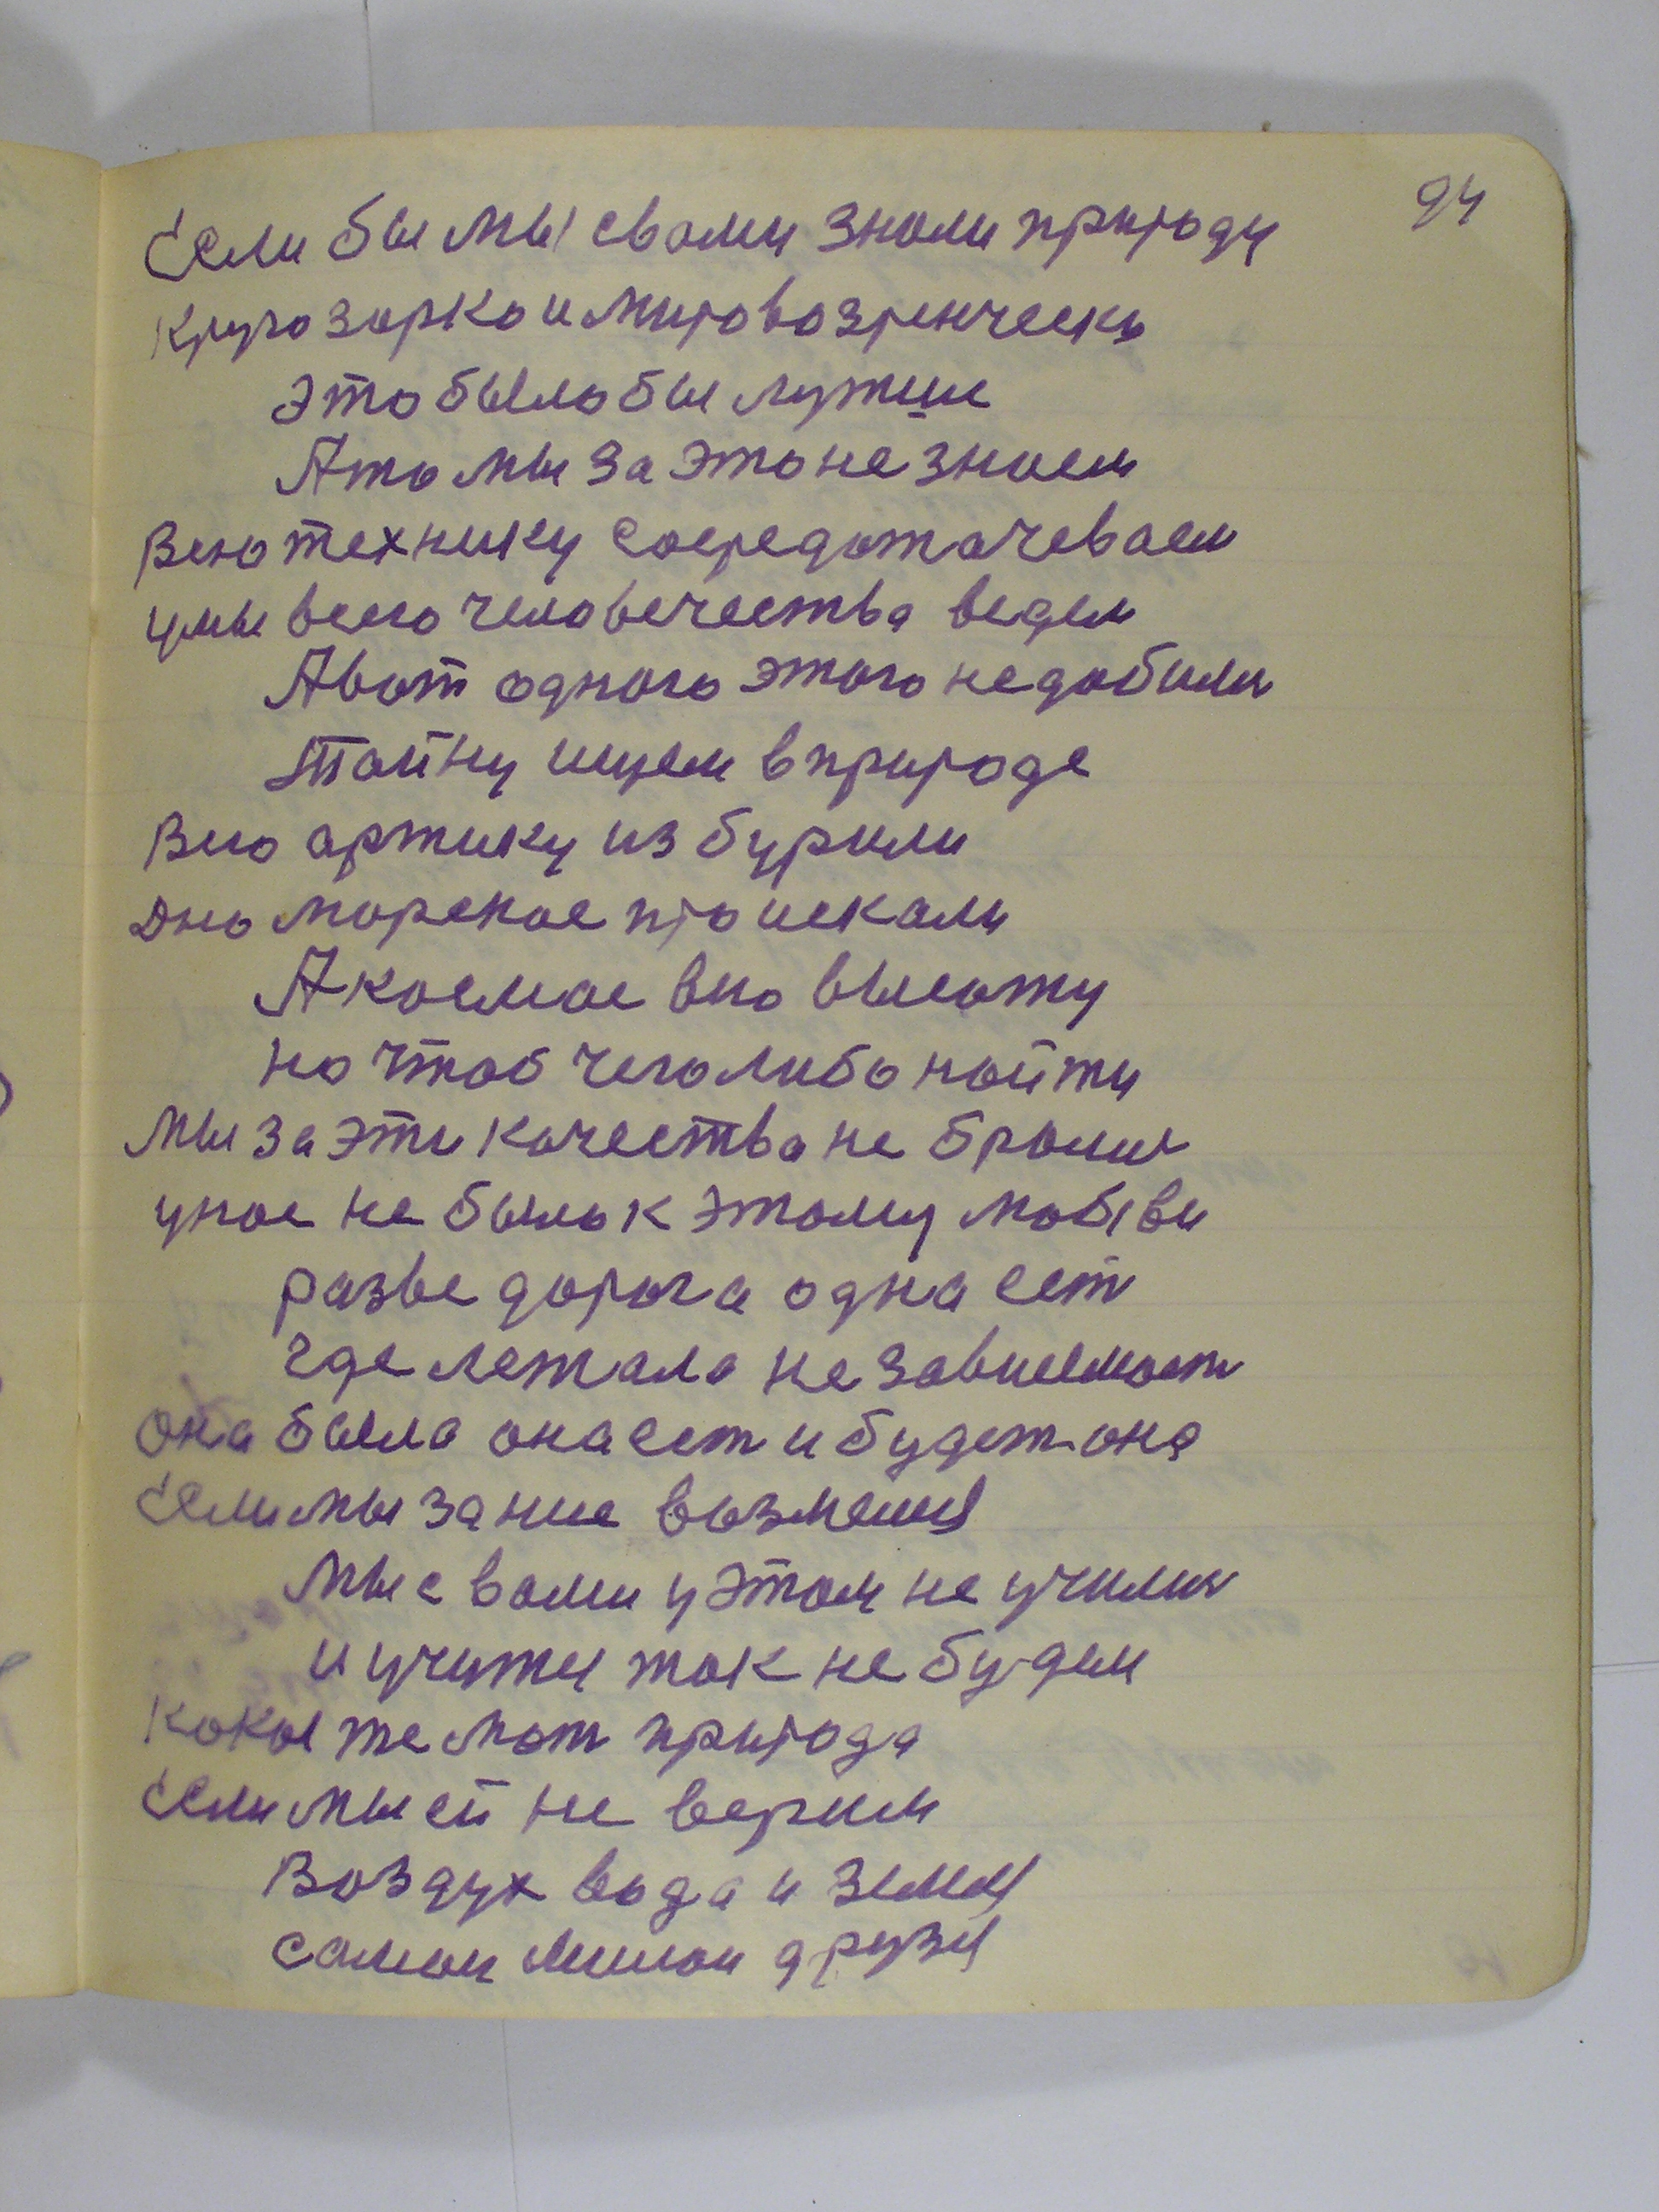 94
Если бы мы свами знали природу
кругозорко и мировозренческо
это было бы лутше
А то мы за это не знаем
Всю технику сосредоточеваем
умы всего человечества ведем
А вот одного этого недобили
тайну ищем в природе
Всю артику избурили
дно морское проискали
А космос всю высоту
но чтоб чего либо найти
мы за эти качества не брались
унас не было к этому любви
разве дорога одна ест
где летала независемост
она была она ест и будет она
Если мы за нее возмемся
мы с вами у этом не учились
и учится так не будем
кокая же мат природа
Если мы ей не верим
Воздух вода и земля
самои милои друзя